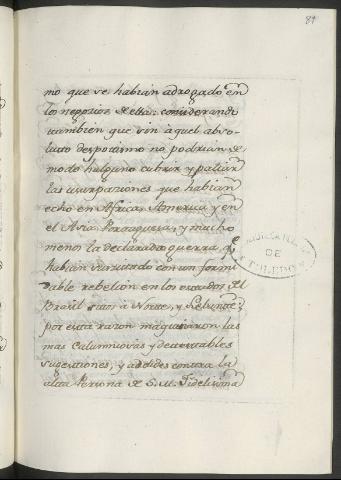 89
mo que se habian adrogado en
los negocios de ella: considerando
tambien que sin aquel abso-
luto despotismo no podrian de
modo halguno cubrir y paliar
las usurpaciones que habian
echo en Africa, America, y en
el Asia Portuguesa, y mucho
menos la declarada guerra, q.e
habian suscitado con un formi
dable rebelion en los estados del
Brasil sitos à Norte, y
por esta razon maquinaron las
mas calumniosas y detestables
sugestiones, y contra la
alta Persona de S. M. Fidelisima
DE
TOLEDO